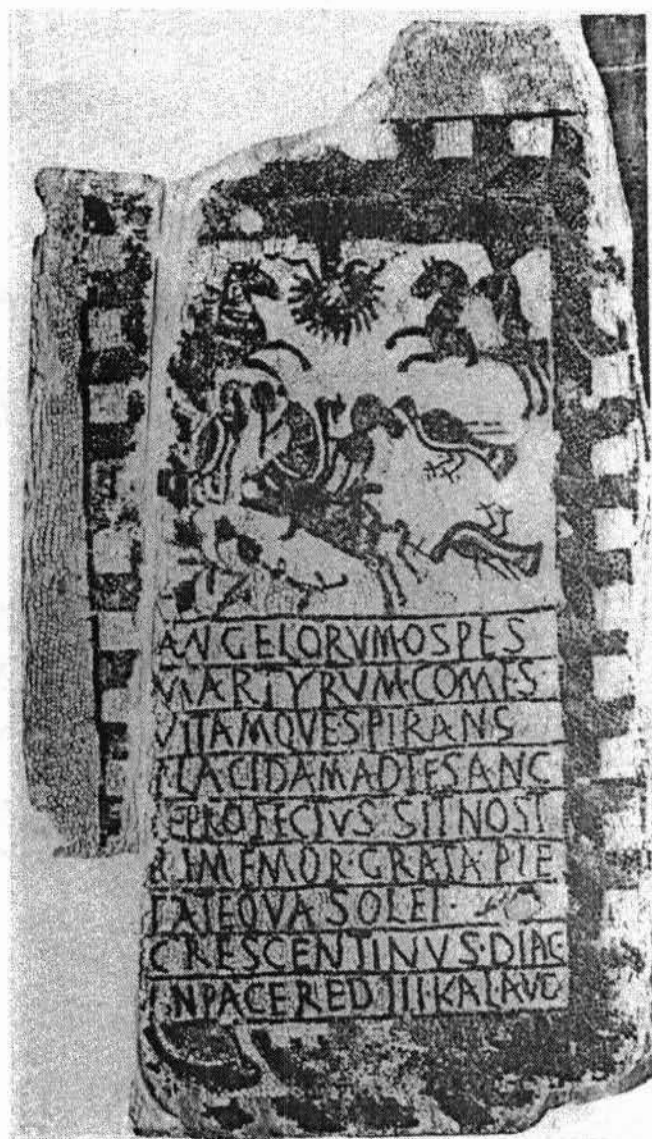 ANGELORVM·OSPES
MARTYRVM·COMES
VITAMQVESPIRANS
PLACIDAMADIESANC
TEPROFECTVS·SITNOST
RIMEMOR·GRATA·PIE
TATEQVASOLET·
CRESCENTINVS·DIAC·
INPACERED III·KAL·AVG